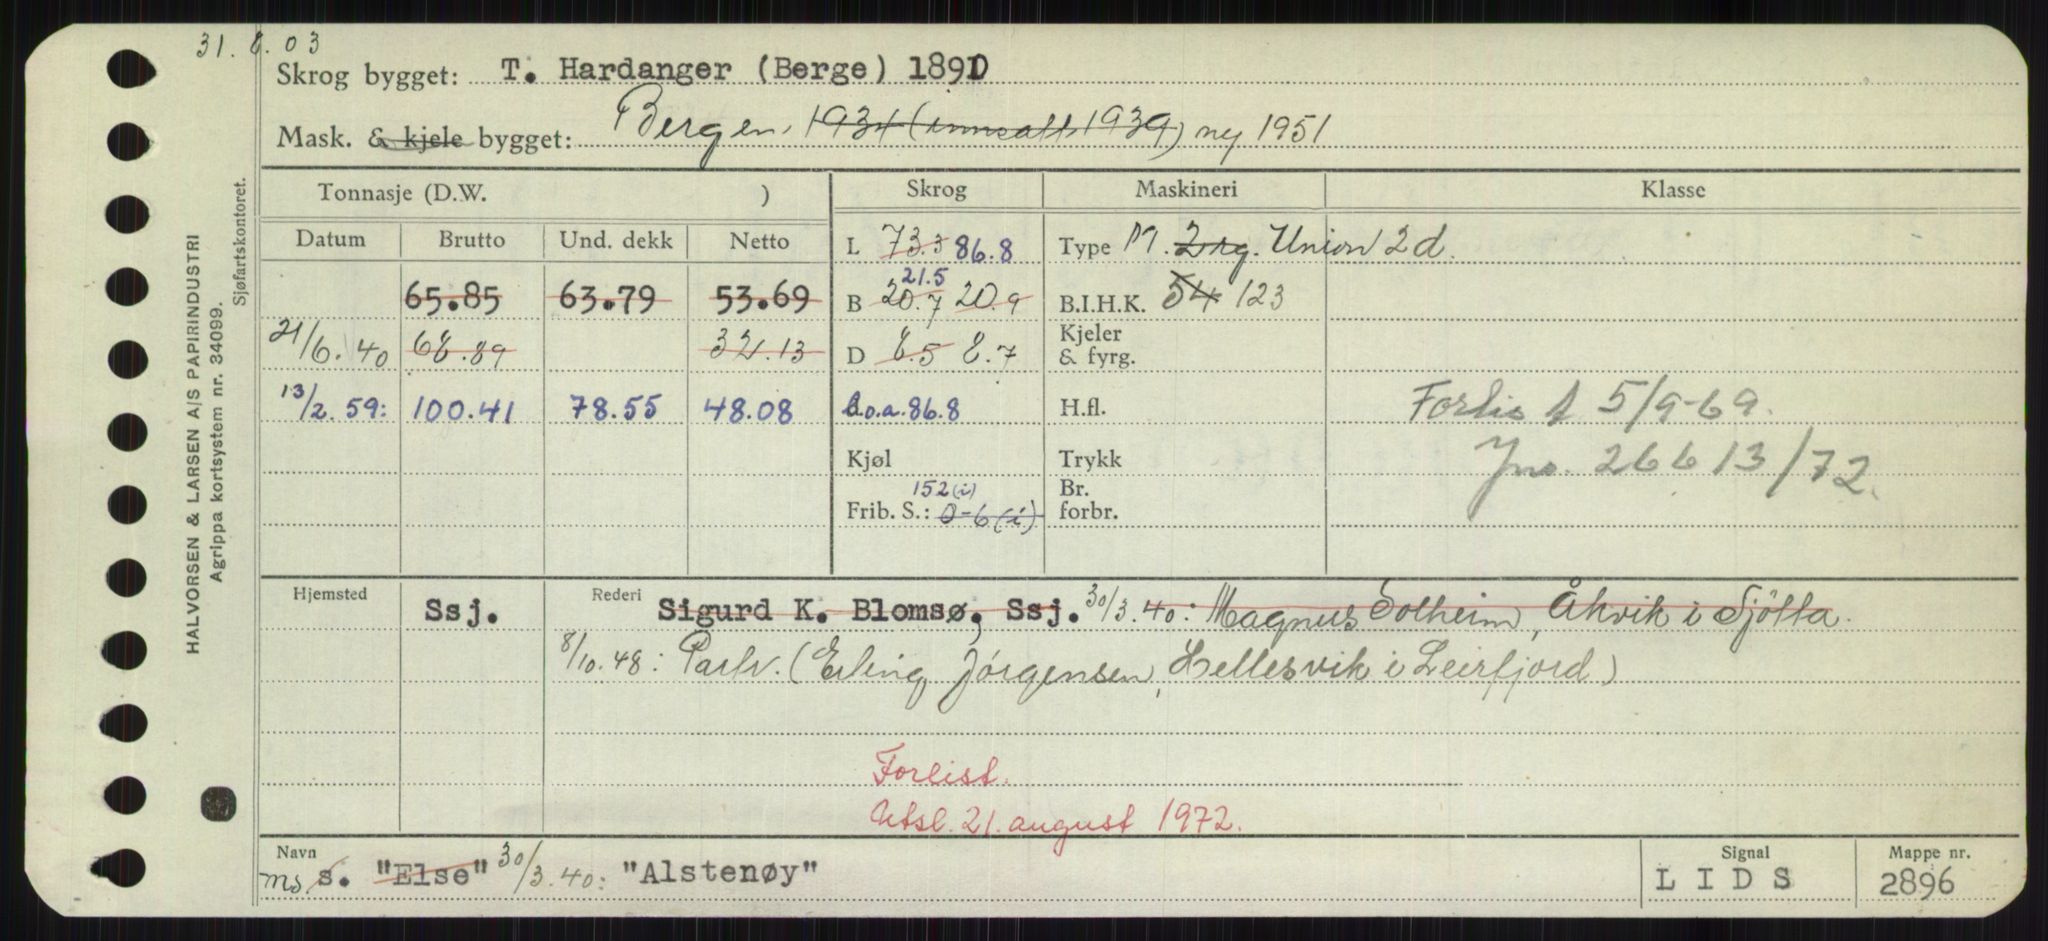 31. 8. 03
Skrog bygget: T. Hardanger (Berge) 1891
Mask. & kjele bygget: Bergen, 1934 (innsatt 1939) ny 1951
Tonnasje (D.W. ) Skrog Maskineri Klasse
Datum Brutto Und. dekk Netto L 73.3 86.8 Type M. 2 Union 2d.
21.5
65.85 63.79 53.69 B 20.7 20.9 B.I.H.K. 54 123
21/6. 40 68.89 32.13 D 8.5 8.7 Kjeler & fyrg.
13/2. 59: 100.41 78.55 48.08 l.o.a. 86.8 H.fl. Forlis t 5/9-69.
Kjøl Trykk Jno. 26613/72.
152 (i)
Frib. S.: 0-6 (i) Br. forbr.
Hjemsted Ssj. Rederi Sigurd K. Blomsø, Ssj. 30/3.40: Magnus Solheim, Åkvik i Sjötta.
8/10.48: Partr. (Erling Jörgensen, Hellesvik i Leirfjord)
Forlist.
Utsl. 21. august 1972.
Navn Signal Mappe nr.
ms. s. "Else" 30/3.40: "Alstenøy" LIDS 2896
HALVORSEN & LARSEN A/S PAPIRINDUSTRI
Agrippa kortsystem nr. 34099.
Sjøfartskontoret.